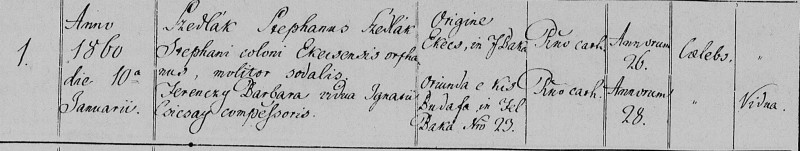 1. Anno 1860 die 10ª Januarii.
Szedlák Stephanus Szedlák
Stephani coloni Ekecsensis orpha-
nus, molitor sodalis.
Ferenczy Barbara vidua Ignatii
Csicsay compossoris.
Origine
Ekecs, in F Baka
Oriunda e Kis
Budafa, in Fel
Baka Nro 23.
Rno cath.
Rno cath.
Annorum
26.
Annorum
28.
Cælebs.
"
"
Vidua.